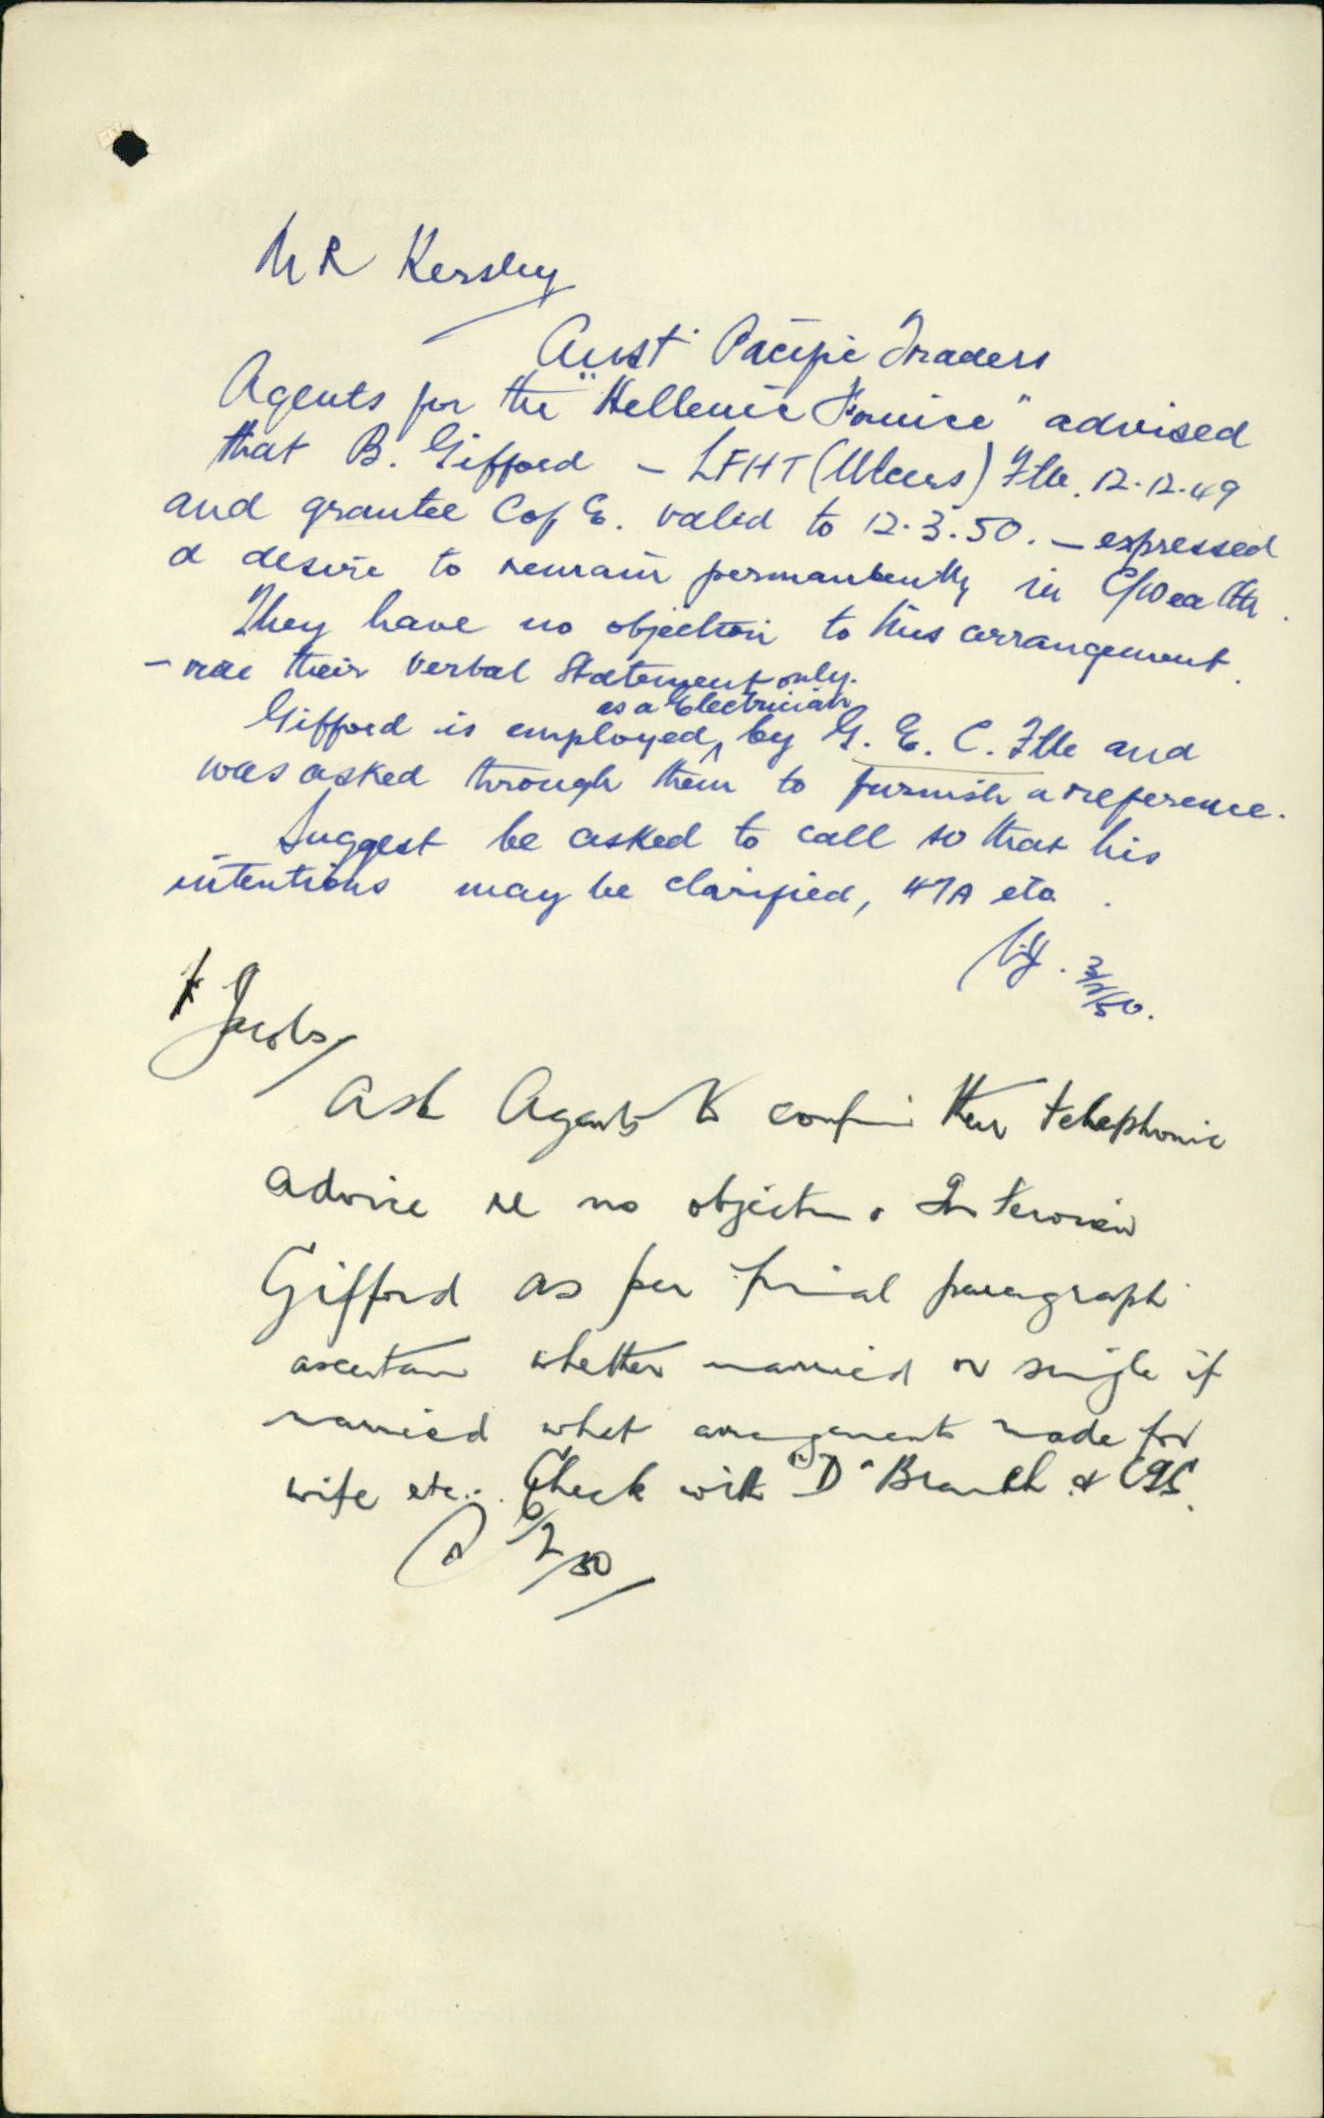 Mr Kersley
Aust. Pacific Traders
Agents for the "Hellenic Prince" advised
that B. Gifford – LFHT (Ulcers) Ftle. 12.12.49
and grantee C of E. valid to 12.3.50. – expressed
a desire to remain permanently in C/Wealth.
They have no objection to this arrangement.
– vide their verbal statement only.
as a Electrician
Gifford is employed by G. E. C. Ftle and
was asked through them to furnish a reference.
Suggest he asked to call so that his
intentions may be clarified, 47A etc.
3/2/50.
Jacobs
Ask Agents to confirm their telephonic
advice re no objection. Interview
Gifford as per final paragraph
ascertain whether married or single if
married what arrangements made for
wife etc.. Check with "D" Branch & CIS.
6/2/50